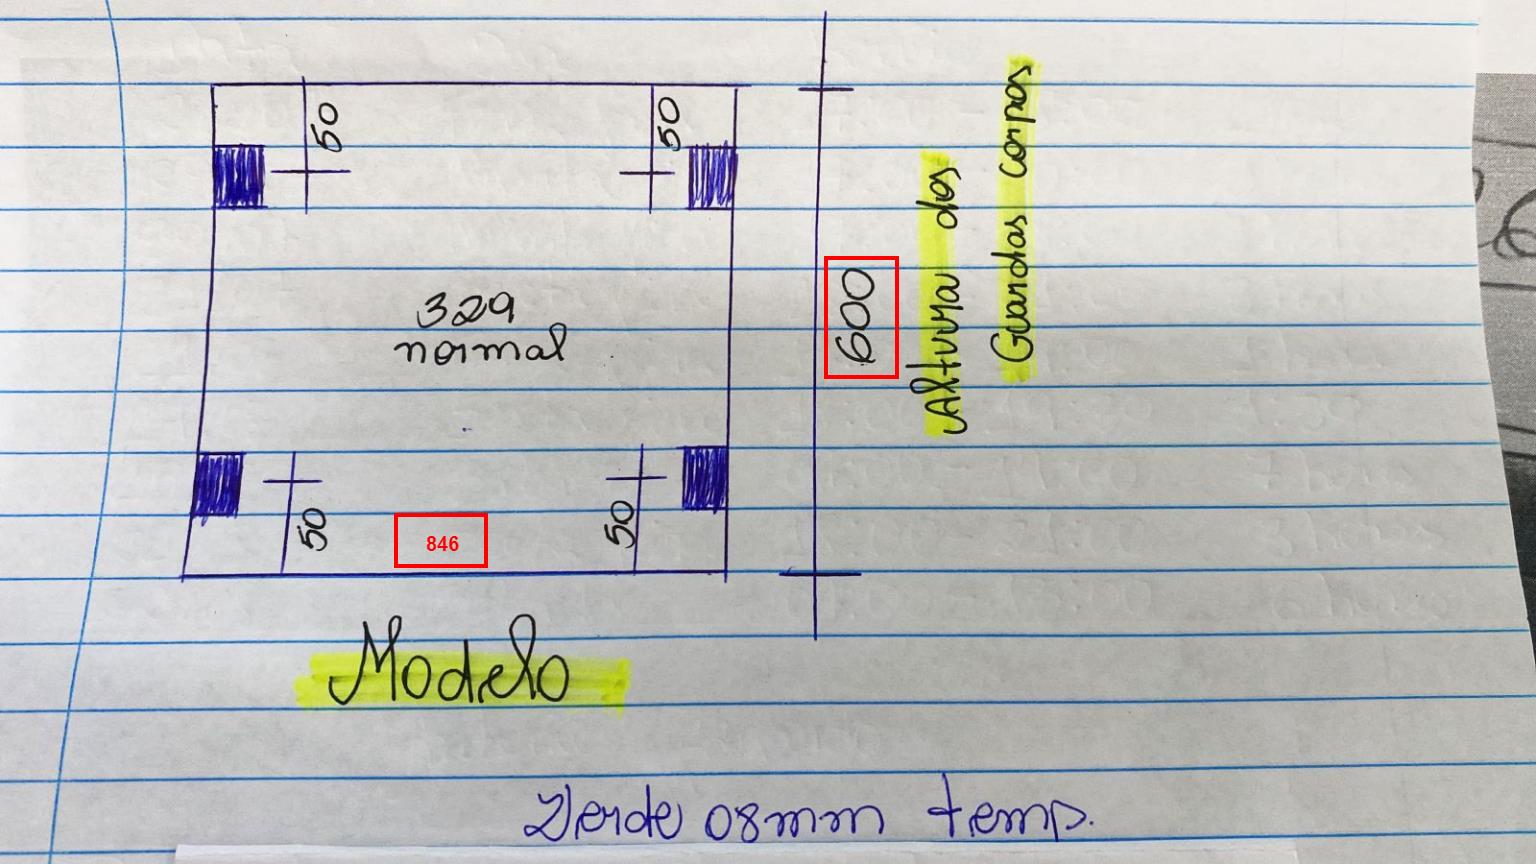 50
50
329
normal
600
Altura dos
Guardas corpos
50
50
846
Modelo
Verde 08mm temp.